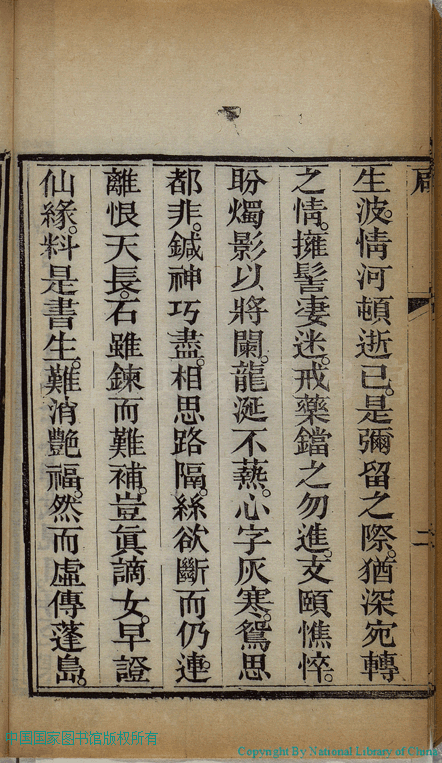 生波。情河頓逝已。是彌留之際。猶深宛轉
之情。擁髻凄迷。戒藥鐺之勿進。支頤憔悴。
盼燭影以將闌。龍涎不爇。心字灰寒。鴛思
都非。鍼神巧盡。相思路隔。絲欲斷而仍連
離恨天長。石雖鍊而難補。豈眞謫女。早證
仙緣。料是書生。難消艷福。然而虛傳蓬島。
中国国家图书馆版权所有
Copyright By National Library of China